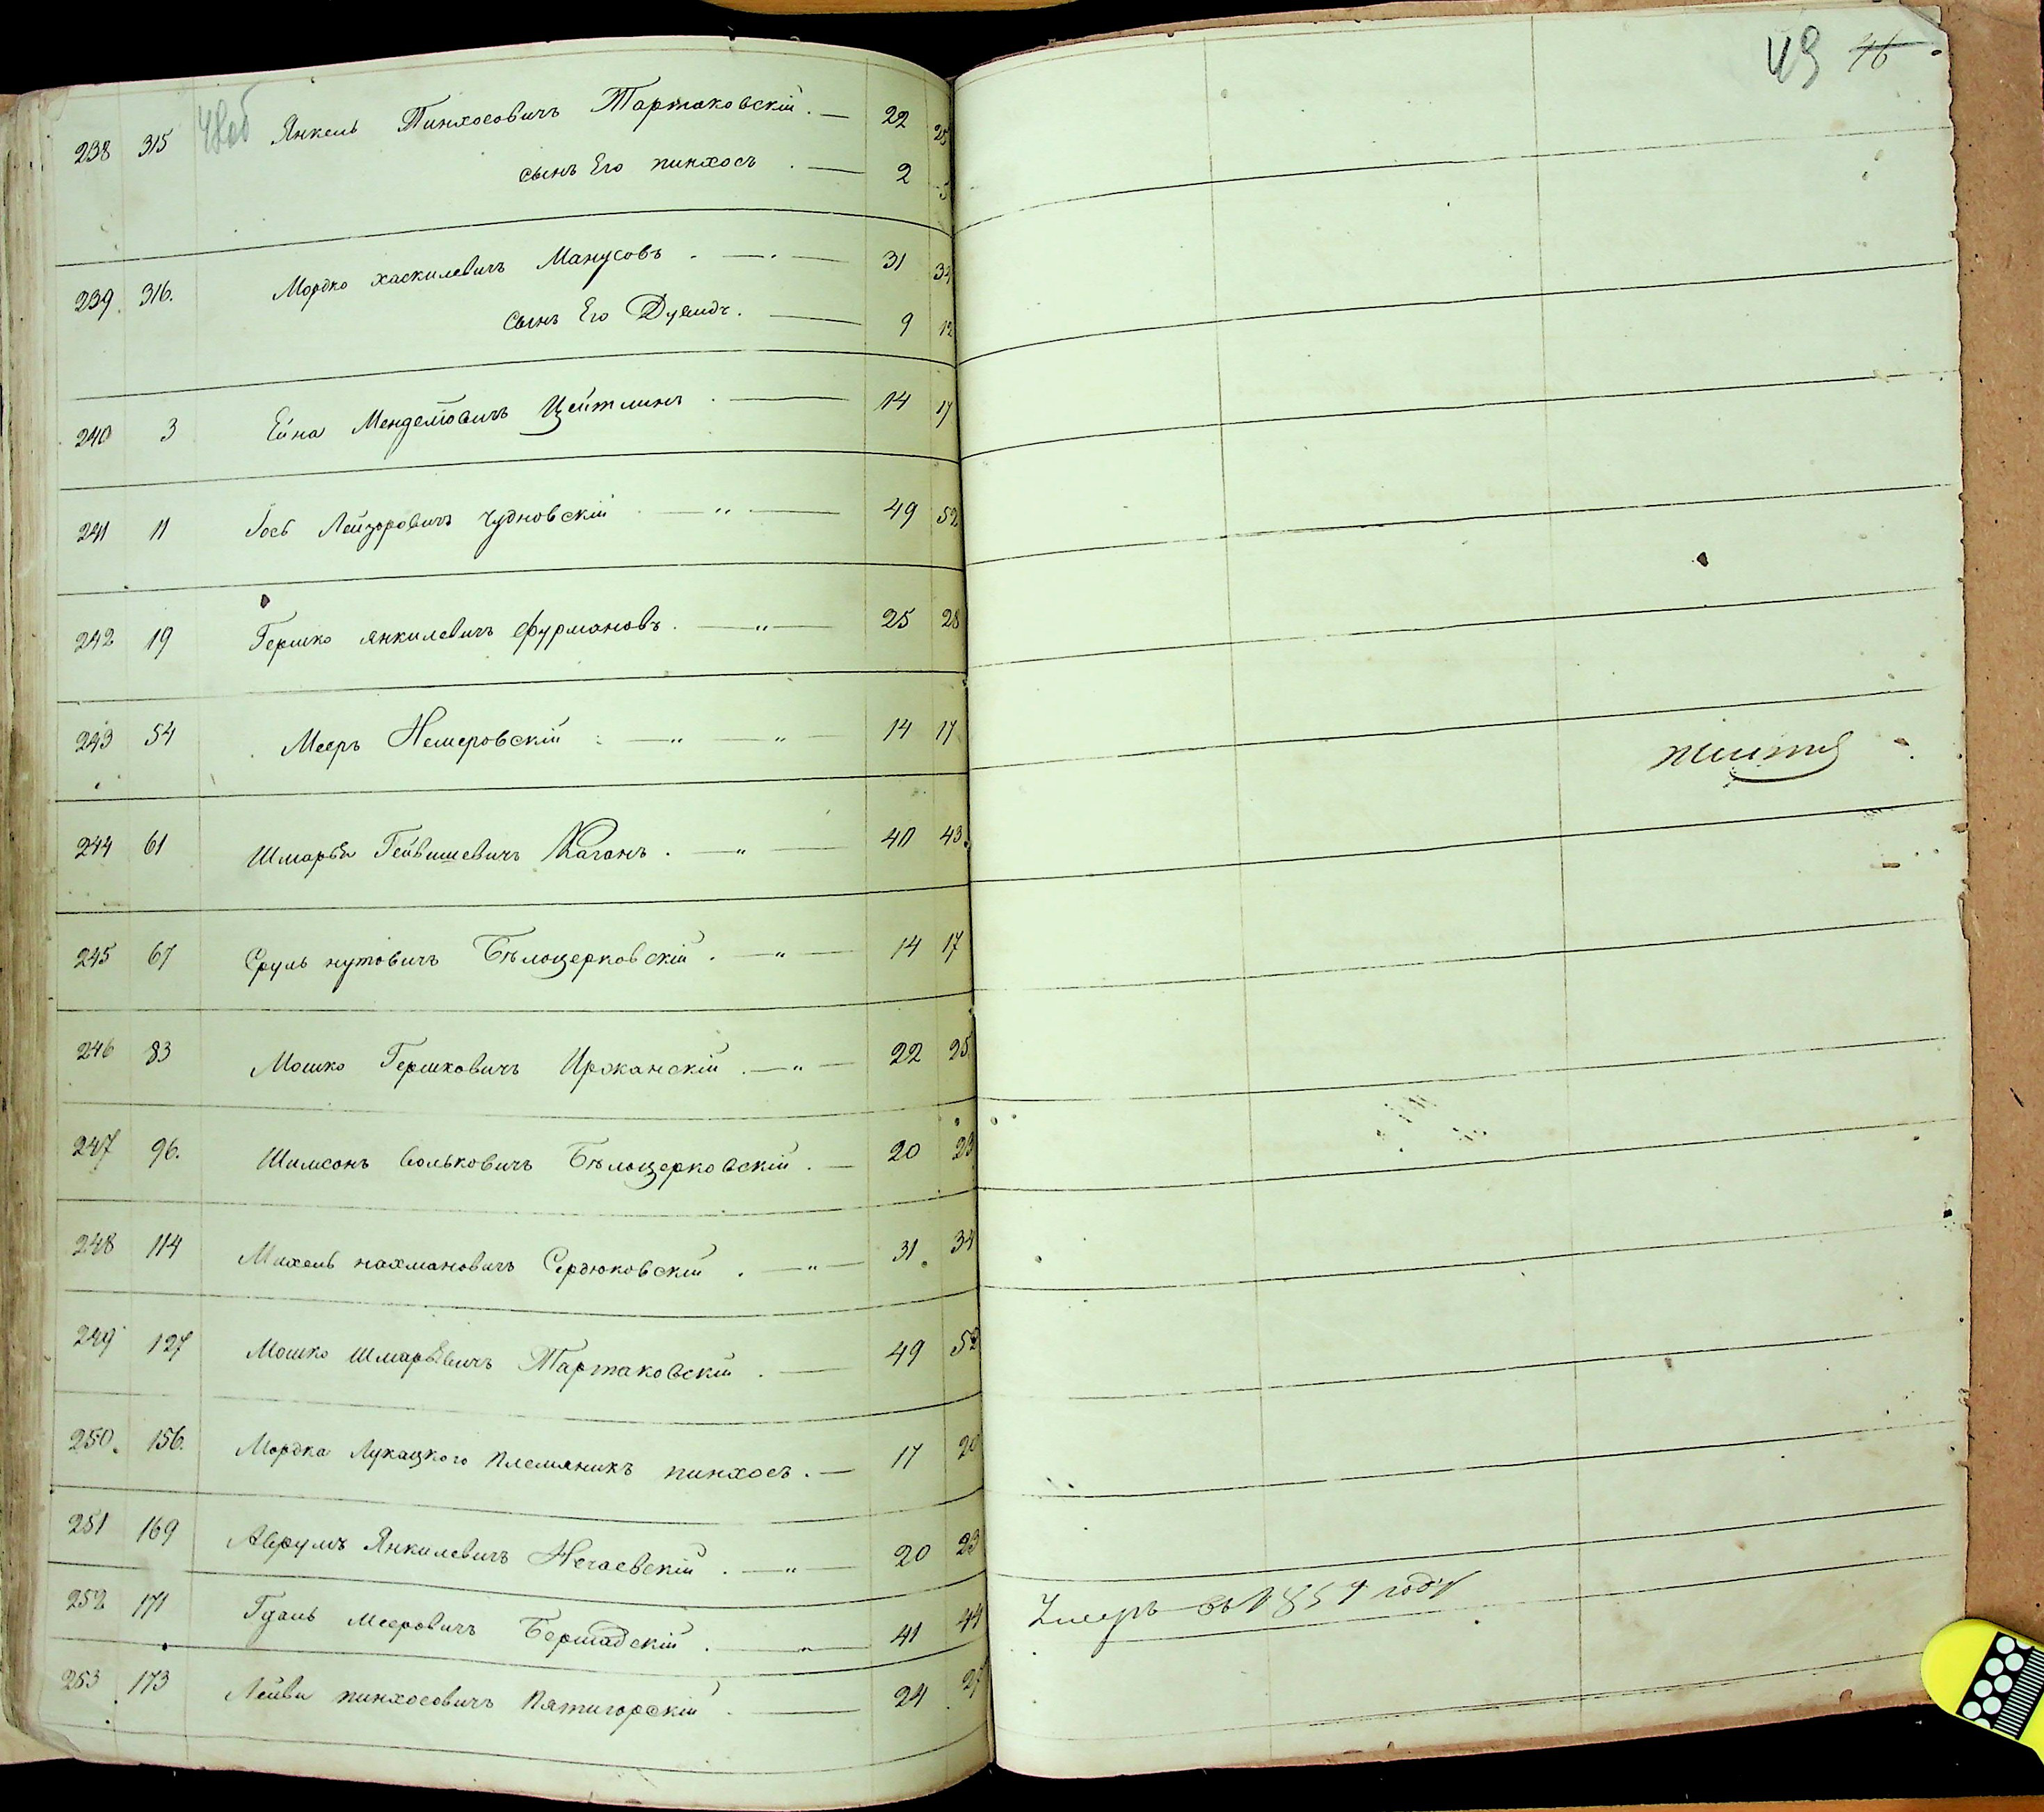 49 46
238 315 48об Янкель Пинхосовичъ Тартаковскій . — 22 25
сынъ Его пинхосъ . — 2 5
239. 316. Мордко хаскилевичъ Манусовъ . — . — 31 34
сынъ Его Дувидъ . — 9 12
240 3 Ейна Менделювичъ Цейтлинъ . — 14 17
241 11 Іось Лейзоровичъ Чудновскій . — " — 49 52
242 19 Гершко янкилевичъ Фурмановъ . — " — 25 28
243 54 Мееръ Немеровскій : — " — " — 14 17
244 61 Шмарья Гейвишевичъ Каганъ . — " — 40 43
245 67 Сруль нутовичъ Бѣлоцерковскій . — " — 14 17
246 83 Мошко Гершковичъ Иржанскій . — " — 22 25
247 96. Шимсонъ вольковичъ Бѣлоцерковскій . — 20 23
248 114 Михель нахмановичъ Сердюковскій . — " — 31 34
249 127 Мошко шмарьевичъ Тартаковскій . — 49 52
250. 156. Мордка Лукацкого племяникъ пинхосъ . — 17 20
251 169 Аврумъ Янкилевичъ Нечаевскій . — " — 20 23
252 171 Гдаль Мееровичъ Бершадскій . — " — 41 44 Умеръ въ 1859 году
253 173 Лейви пинхосовичъ Пятигорскій . — 24 27